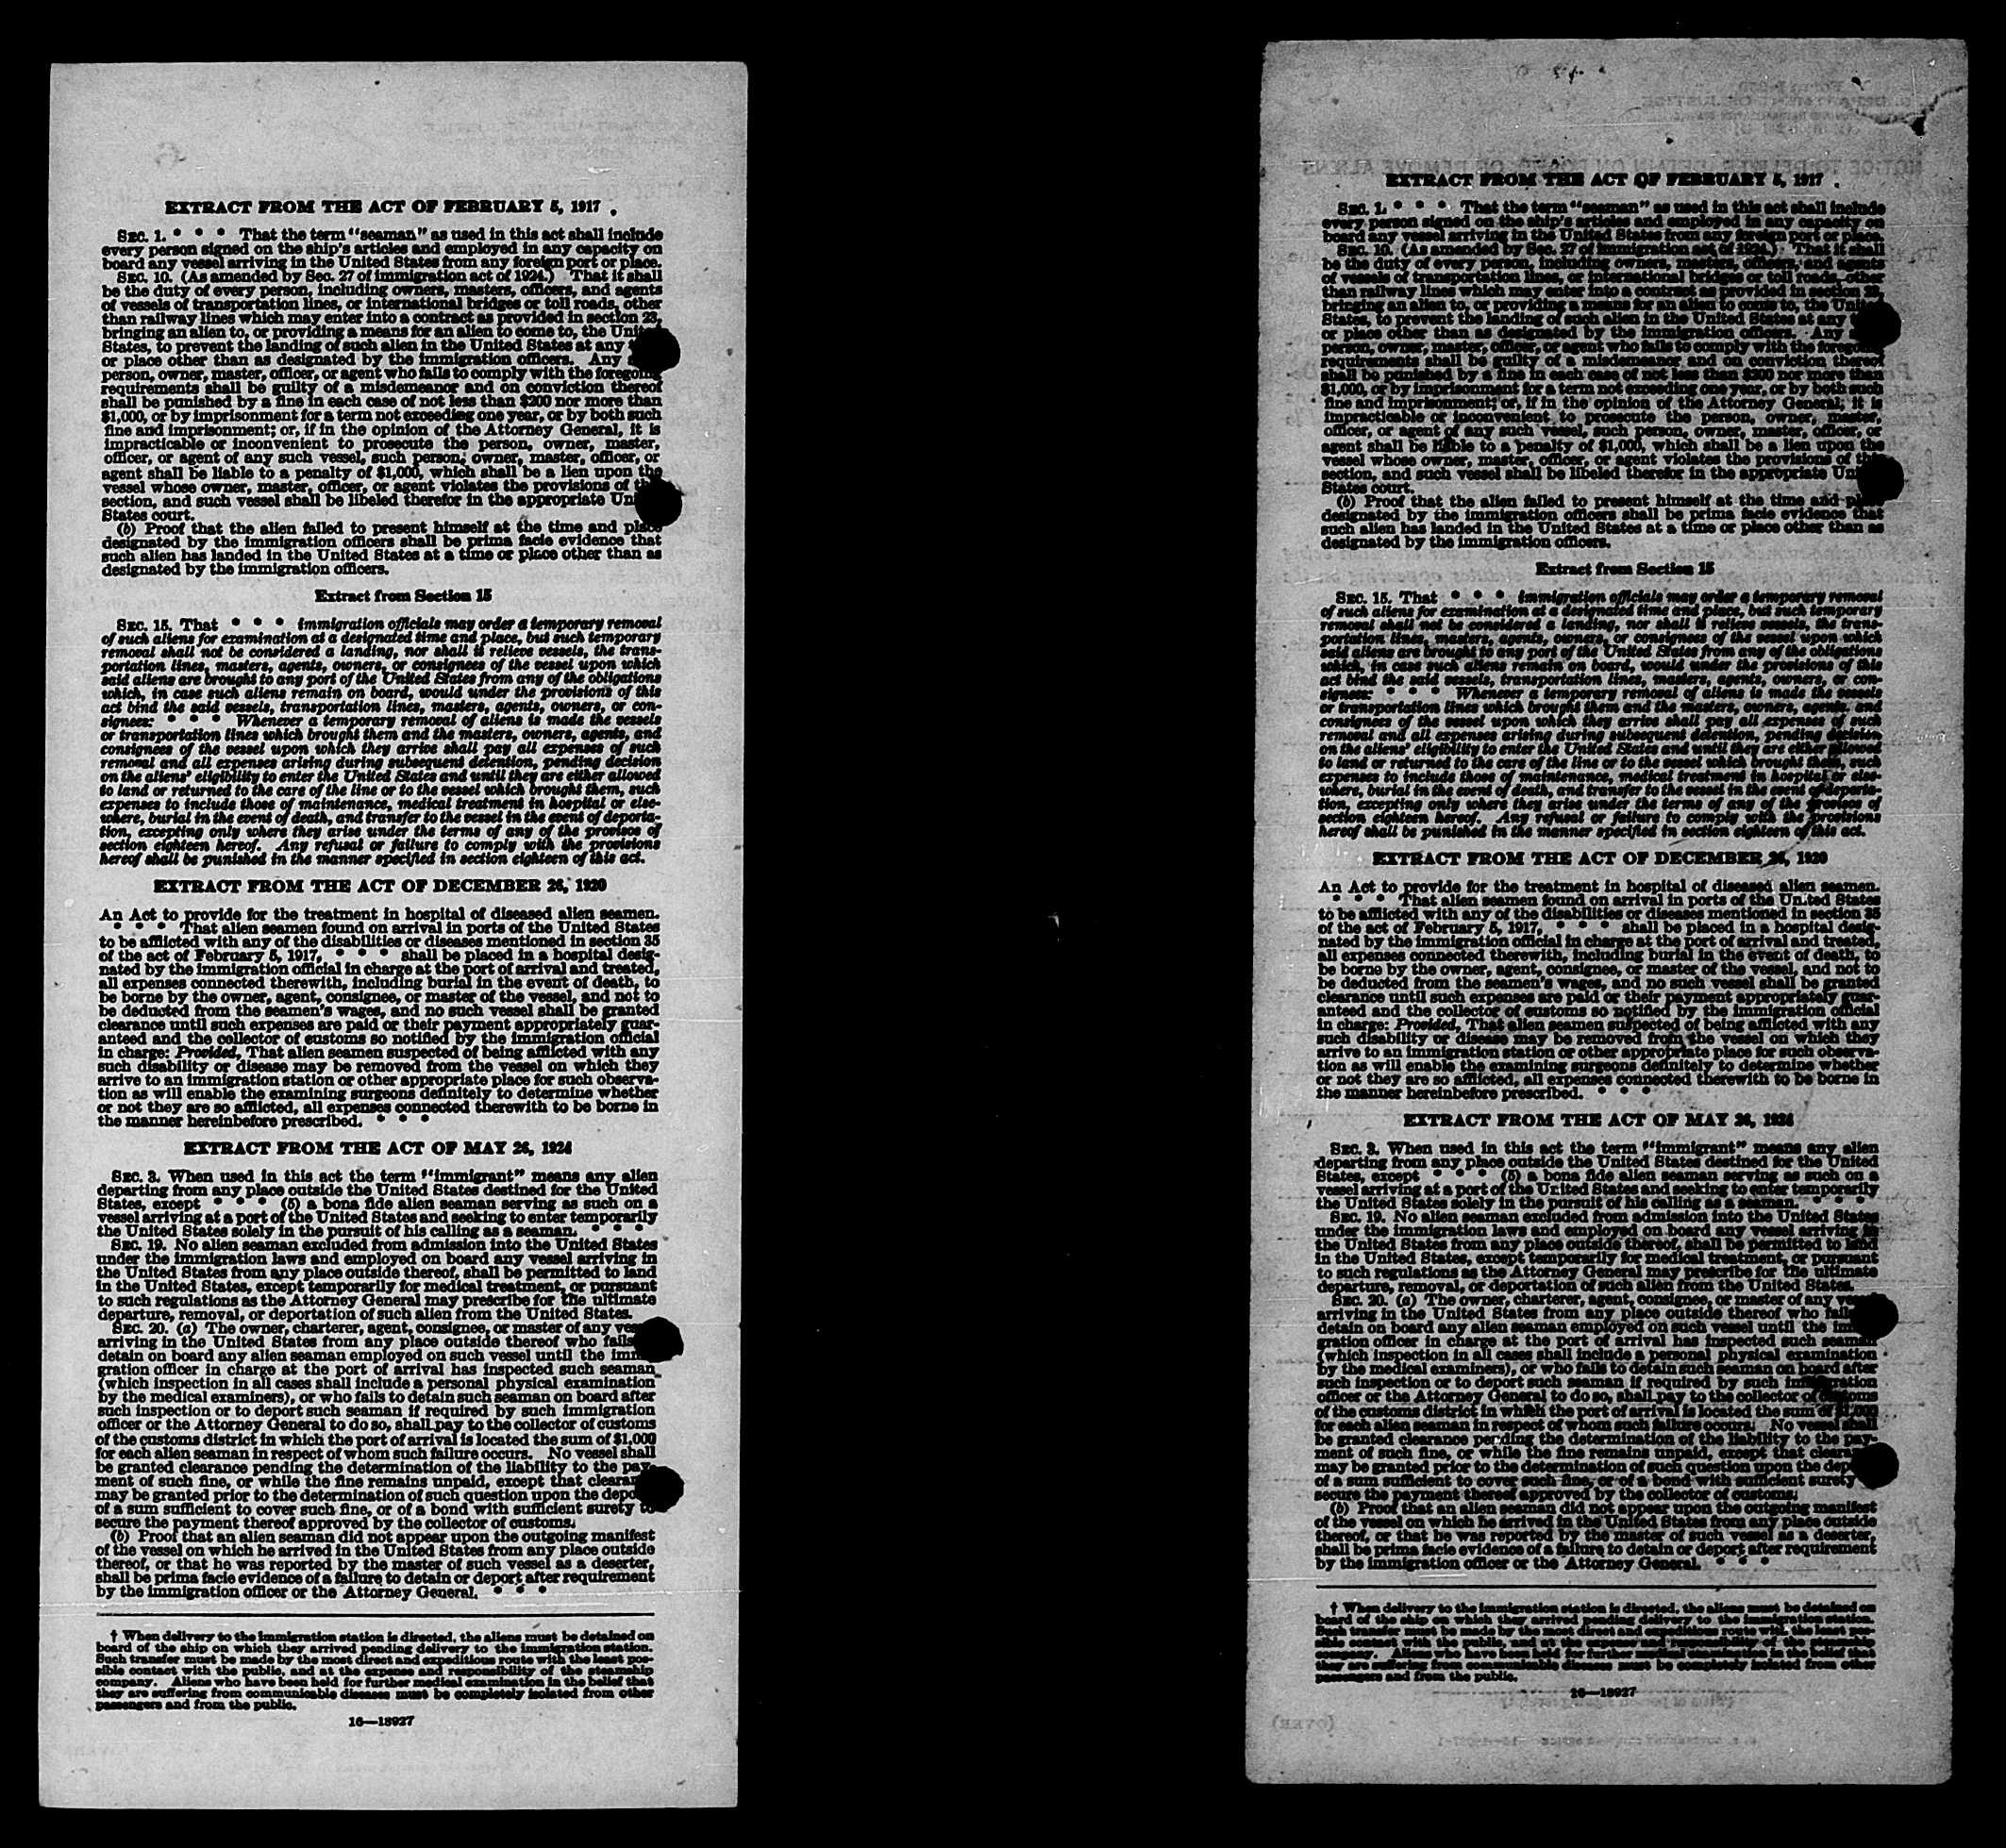 EXTRACT FROM THE ACT OF FEBRUARY 5, 1917
SEC. 1. * * * That the term "seaman" as used in this act shall include
every person signed on the ship's articles and employed in any capacity on
board any vessel arriving in the United States from any foreign port or place.
SEC. 10. (As amended by Sec. 27 of immigration act of 1924.) That it shall
be the duty of every person, including owners, masters, officers, and agents
of vessels of transportation lines, or international bridges or toll roads, other
than railway lines which may enter into a contract as provided in section 23,
bringing an alien to, or providing a means for an alien to come to, the United
States, to prevent the landing of such alien in the United States at any
or place other than as designated by the immigration officers. Any
person, owner, master, officer, or agent who fails to comply with the foregoing
requirements shall be guilty of a misdemeanor and on conviction thereof
shall be punished by a fine in each case of not less than $200 nor more than
$1,000, or by imprisonment for a term not exceeding one year, or by both such
fine and imprisonment; or, if in the opinion of the Attorney General, it is
impracticable or inconvenient to prosecute the person, owner, master,
officer, or agent of any such vessel, such person, owner, master, officer, or
agent shall be liable to a penalty of $1,000, which shall be a lien upon the
vessel whose owner, master, officer, or agent violates the provisions of this
section, and such vessel shall be libeled therefor in the appropriate
States court.
(b) Proof that the alien failed to present himself at the time and place
designated by the immigration officers shall be prima facie evidence that
such alien has landed in the United States at a time or place other than as
designated by the immigration officers.
Extract from Section 15
SEC. 15. That * * * immigration officials may order a temporary removal
of such aliens for examination at a designated time and place, but such temporary
removal shall not be considered a landing, nor shall it relieve vessels, the trans-
portation lines, masters, agents, owners, or consignees of the vessel upon which
said aliens are brought to any port of the United States from any of the obligations
which, in case such aliens remain on board, would under the provisions of this
act bind the said vessels, transportation lines, masters, agents, owners, or con-
signees: * * * Whenever a temporary removal of aliens is made the vessels
or transportation lines which brought them and the masters, owners, agents, and
consignees of the vessel upon which they arrive shall pay all expenses of such
removal and all expenses arising during subsequent detention, pending decision
on the aliens' eligibility to enter the United States and until they are either allowed
to land or returned to the care of the line or to the vessel which brought them, such
expenses to include those of maintenance, medical treatment in hospital or else-
where, burial in the event of death, and transfer to the vessel in the event of deporta-
tion, excepting only where they arise under the terms of any of the provisos of
section eighteen hereof. Any refusal or failure to comply with the provisions
hereof shall be punished in the manner specified in section eighteen of this act.
EXTRACT FROM THE ACT OF DECEMBER 26, 1920
An Act to provide for the treatment in hospital of diseased alien seamen.
* * * That alien seamen found on arrival in ports of the United States
to be afflicted with any of the disabilities or diseases mentioned in section 35
of the act of February 5, 1917, * * * shall be placed in a hospital desig-
nated by the immigration official in charge at the port of arrival and treated,
all expenses connected therewith, including burial in the event of death, to
be borne by the owner, agent, consignee, or master of the vessel, and not to
be deducted from the seamen's wages, and no such vessel shall be granted
clearance until such expenses are paid or their payment appropriately guar-
anteed and the collector of customs so notified by the immigration official
in charge: Provided, That alien seamen suspected of being afflicted with any
such disability or disease may be removed from the vessel on which they
arrive to an immigration station or other appropriate place for such observa-
tion as will enable the examining surgeons definitely to determine whether
or not they are so afflicted, all expenses connected therewith to be borne in
the manner hereinbefore prescribed. * * *
EXTRACT FROM THE ACT OF MAY 26, 1924
SEC. 3. When used in this act the term "immigrant" means any alien
departing from any place outside the United States destined for the United
States, except * * * (5) a bona fide alien seaman serving as such on a
vessel arriving at a port of the United States and seeking to enter temporarily
the United States solely in the pursuit of his calling as a seaman. * * *
SEC. 19. No alien seaman excluded from admission into the United States
under the immigration laws and employed on board any vessel arriving in
the United States from any place outside thereof, shall be permitted to land
in the United States, except temporarily for medical treatment, or pursuant
to such regulations as the Attorney General may prescribe for the ultimate
departure, removal, or deportation of such alien from the United States.
SEC. 20. (a) The owner, charterer, agent, consignee, or master of any vessel
arriving in the United States from any place outside thereof who fails
detain on board any alien seaman employed on such vessel until the immi-
gration officer in charge at the port of arrival has inspected such seaman
(which inspection in all cases shall include a personal physical examination
by the medical examiners), or who fails to detain such seaman on board after
such inspection or to deport such seaman if required by such immigration
officer or the Attorney General to do so, shall pay to the collector of customs
of the customs district in which the port of arrival is located the sum of $1,000
for each alien seaman in respect of whom such failure occurs. No vessel shall
be granted clearance pending the determination of the liability to the pay-
ment of such fine, or while the fine remains unpaid, except that clearance
may be granted prior to the determination of such question upon the
of a sum sufficient to cover such fine, or of a bond with sufficient surety to
secure the payment thereof approved by the collector of customs.
(b) Proof that an alien seaman did not appear upon the outgoing manifest
of the vessel on which he arrived in the United States from any place outside
thereof, or that he was reported by the master of such vessel as a deserter,
shall be prima facie evidence of a failure to detain or deport after requirement
by the immigration officer or the Attorney General. * * *
† When delivery to the immigration station is directed, the aliens must be detained on
board of the ship on which they arrived pending delivery to the immigration station.
Such transfer must be made by the most direct and expeditious route with the least pos-
sible contact with the public, and at the expense and responsibility of the steamship
company. Aliens who have been held for further medical examination in the belief that
they are suffering from communicable diseases must be completely isolated from other
passengers and from the public.
16—18927
EXTRACT FROM THE ACT OF FEBRUARY 5, 1917
SEC. 1. * * * That the term "seaman" as used in this act shall include
every person signed on the ship's articles and employed in any capacity on
board any vessel arriving in the United States from any foreign port or place.
SEC. 10. (As amended by Sec. 27 of immigration act of 1924.) That it shall
be the duty of every person, including owners, masters, officers, and agents
of vessels of transportation lines, or international bridges or toll roads, other
than railway lines which may enter into a contract as provided in section 23,
bringing an alien to, or providing a means for an alien to come to, the United
States, to prevent the landing of such alien in the United States at any
or place other than as designated by the immigration officers. Any
person, owner, master, officer, or agent who fails to comply with the foregoing
requirements shall be guilty of a misdemeanor and on conviction thereof
shall be punished by a fine in each case of not less than $200 nor more than
$1,000, or by imprisonment for a term not exceeding one year, or by both such
fine and imprisonment; or, if in the opinion of the Attorney General, it is
impracticable or inconvenient to prosecute the person, owner, master,
officer, or agent of any such vessel, such person, owner, master, officer, or
agent shall be liable to a penalty of $1,000, which shall be a lien upon the
vessel whose owner, master, officer, or agent violates the provisions of this
section, and such vessel shall be libeled therefor in the appropriate
States court.
(b) Proof that the alien failed to present himself at the time and place
designated by the immigration officers shall be prima facie evidence that
such alien has landed in the United States at a time or place other than as
designated by the immigration officers.
Extract from Section 15
SEC. 15. That * * * immigration officials may order a temporary removal
of such aliens for examination at a designated time and place, but such temporary
removal shall not be considered a landing, nor shall it relieve vessels, the trans-
portation lines, masters, agents, owners, or consignees of the vessel upon which
said aliens are brought to any port of the United States from any of the obligations
which, in case such aliens remain on board, would under the provisions of this
act bind the said vessels, transportation lines, masters, agents, owners, or con-
signees: * * * Whenever a temporary removal of aliens is made the vessels
or transportation lines which brought them and the masters, owners, agents, and
consignees of the vessel upon which they arrive shall pay all expenses of such
removal and all expenses arising during subsequent detention, pending decision
on the aliens' eligibility to enter the United States and until they are either allowed
to land or returned to the care of the line or to the vessel which brought them, such
expenses to include those of maintenance, medical treatment in hospital or else-
where, burial in the event of death, and transfer to the vessel in the event of deporta-
tion, excepting only where they arise under the terms of any of the provisos of
section eighteen hereof. Any refusal or failure to comply with the provisions
hereof shall be punished in the manner specified in section eighteen of this act.
EXTRACT FROM THE ACT OF DECEMBER 26, 1920
An Act to provide for the treatment in hospital of diseased alien seamen.
* * * That alien seamen found on arrival in ports of the United States
to be afflicted with any of the disabilities or diseases mentioned in section 35
of the act of February 5, 1917, * * * shall be placed in a hospital desig-
nated by the immigration official in charge at the port of arrival and treated,
all expenses connected therewith, including burial in the event of death, to
be borne by the owner, agent, consignee, or master of the vessel, and not to
be deducted from the seamen's wages, and no such vessel shall be granted
clearance until such expenses are paid or their payment appropriately guar-
anteed and the collector of customs so notified by the immigration official
in charge: Provided, That alien seamen suspected of being afflicted with any
such disability or disease may be removed from the vessel on which they
arrive to an immigration station or other appropriate place for such observa-
tion as will enable the examining surgeons definitely to determine whether
or not they are so afflicted, all expenses connected therewith to be borne in
the manner hereinbefore prescribed. * * *
EXTRACT FROM THE ACT OF MAY 26, 1924
SEC. 3. When used in this act the term "immigrant" means any alien
departing from any place outside the United States destined for the United
States, except * * * (5) a bona fide alien seaman serving as such on a
vessel arriving at a port of the United States and seeking to enter temporarily
the United States solely in the pursuit of his calling as a seaman. * * *
SEC. 19. No alien seaman excluded from admission into the United States
under the immigration laws and employed on board any vessel arriving in
the United States from any place outside thereof, shall be permitted to land
in the United States, except temporarily for medical treatment, or pursuant
to such regulations as the Attorney General may prescribe for the ultimate
departure, removal, or deportation of such alien from the United States.
SEC. 20. (a) The owner, charterer, agent, consignee, or master of any vessel
arriving in the United States from any place outside thereof who fails
detain on board any alien seaman employed on such vessel until the immi-
gration officer in charge at the port of arrival has inspected such seaman
(which inspection in all cases shall include a personal physical examination
by the medical examiners), or who fails to detain such seaman on board after
such inspection or to deport such seaman if required by such immigration
officer or the Attorney General to do so, shall pay to the collector of customs
of the customs district in which the port of arrival is located the sum of $1,000
for each alien seaman in respect of whom such failure occurs. No vessel shall
be granted clearance pending the determination of the liability to the pay-
ment of such fine, or while the fine remains unpaid, except that clearance
may be granted prior to the determination of such question upon the
of a sum sufficient to cover such fine, or of a bond with sufficient surety
secure the payment thereof approved by the collector of customs.
(b) Proof that an alien seaman did not appear upon the outgoing manifest
of the vessel on which he arrived in the United States from any place outside
thereof, or that he was reported by the master of such vessel as a deserter,
shall be prima facie evidence of a failure to detain or deport after requirement
by the immigration officer or the Attorney General. * * *
† When delivery to the immigration station is directed, the aliens must be detained on
board of the ship on which they arrived pending delivery to the immigration station.
Such transfer must be made by the most direct and expeditious route with the least pos-
sible contact with the public, and at the expense and responsibility of the steamship
company. Aliens who have been held for further medical examination in the belief that
they are suffering from communicable diseases must be completely isolated from other
passengers and from the public.
16—18927